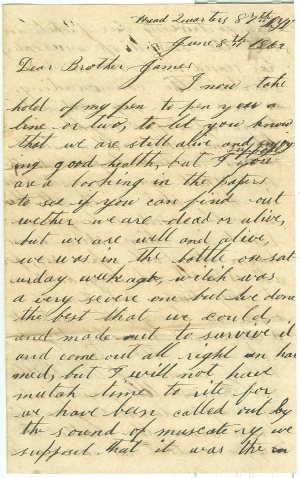 Head Quarters 87th NY
June 8th 1862
Dear Brother James
I now take
hold of my pen to pen you a
line or two, to let you know
that we are still alive and enjoy
ing good health, but I
you
are a looking in the papers
to see if you can find out
wether we are dead or alive,
but we are well and alive,
we was in the battle on sat
urday week ago, witch was
a very severe one but we done
the best that we could,
and made out to survive it
and come out all right un har
med, but I will not have
mutch time to rite for
we have been called out by
the sound of muscatery, we
supposet that it was the